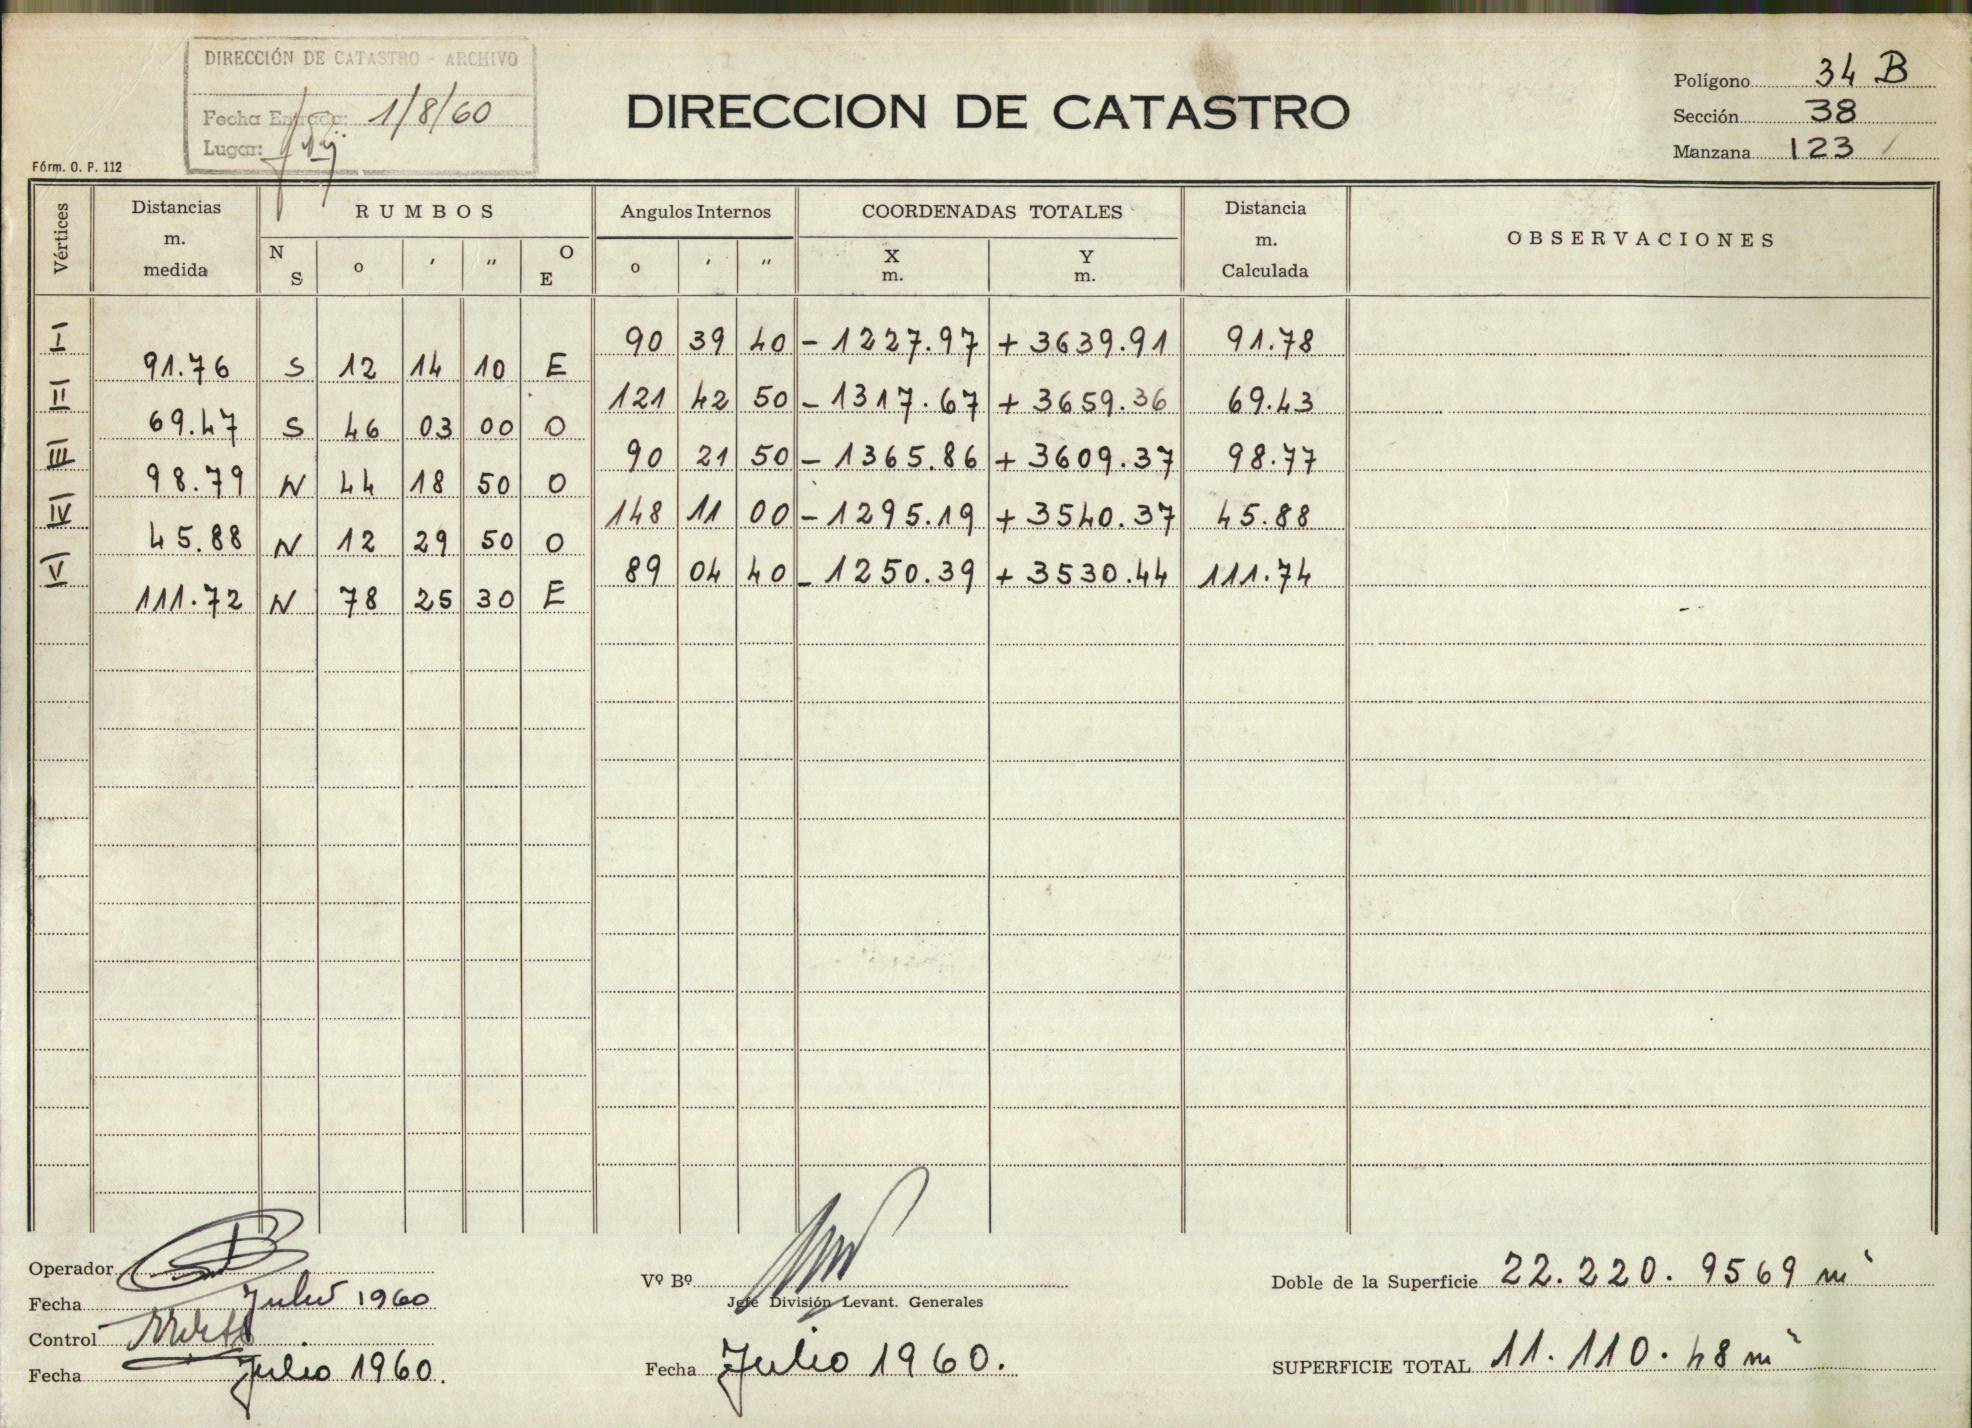 DIRECCIÓN DE CATASTRO - ARCHIVO
Fecha Entrada: 1/8/60
Lugar:
DIRECCION DE CATASTRO
Polígono 34 B
Sección 38
Manzana 123
Fórm. O. P. 112
Vértices Distancias m. medida RUMBOS Angulos Internos COORDENADAS TOTALES Distancia m. Calculada OBSERVACIONES
N S o ′ ″ O E o ′ ″ X m. Y m.
I 90 39 40 - 1227.97 + 3639.91 91.78
91.76 S 12 14 10 E
II 121 42 50 - 1317.67 + 3659.36 69.43
69.47 S 46 03 00 O
III 90 21 50 - 1365.86 + 3609.37 98.77
98.79 N 44 18 50 O
IV 148 11 00 - 1295.19 + 3540.37 45.88
45.88 N 12 29 50 O
V 89 04 40 - 1250.39 + 3530.44 111.74
111.72 N 78 25 30 E
Operador
Fecha Julio 1960
Control
Fecha Julio 1960.
Vº Bº
Jefe División Levant. Generales
Fecha Julio 1960.
Doble de la Superficie 22.220.9569 m²
SUPERFICIE TOTAL 11.110.48 m²